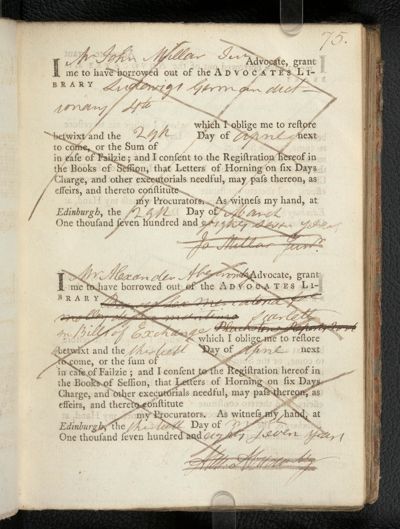 75.
I Mr John Millar Junr Advocate, grant
me to have borrowed out of the ADVOCATES LI-
BRARY Ludewigs German dict-
ionary 4to
which I oblige me to reſtore
betwixt and the 29th Day of April next
to come, or the Sum of
in caſe of Failzie; and I conſent to the Regiſtration hereof in
the Books of Seſſion, that Letters of Horning on ſix Days
Charge, and other executorials needful, may paſs thereon, as
effeirs, and thereto conſtitute
my Procurators. As witneſs my hand, at
Edinburgh, the 29th Day of March
One thouſand ſeven hundred and eighty seven years
Jo Millar Junr.
I Mr Alexander Abercromby Advocate, grant
me to have borrowed out of the ADVOCATES LI-
BRARY
Scarlett
on Bills of Exchange
which I oblige me to reſtore
betwixt and the thirtieth Day of April next
to come, or the ſum of
in caſe of Failzie; and I conſent to the Regiſtration hereof in
the Books of Seſſion, that Letters of Horning on ſix Days
Charge, and other executorials needful, may paſs thereon, as
effeirs, and thereto conſtitute
my Procurators. As witneſs my hand, at
Edinburgh, the thirtieth Day of March
One thouſand ſeven hundred and eighty seven years